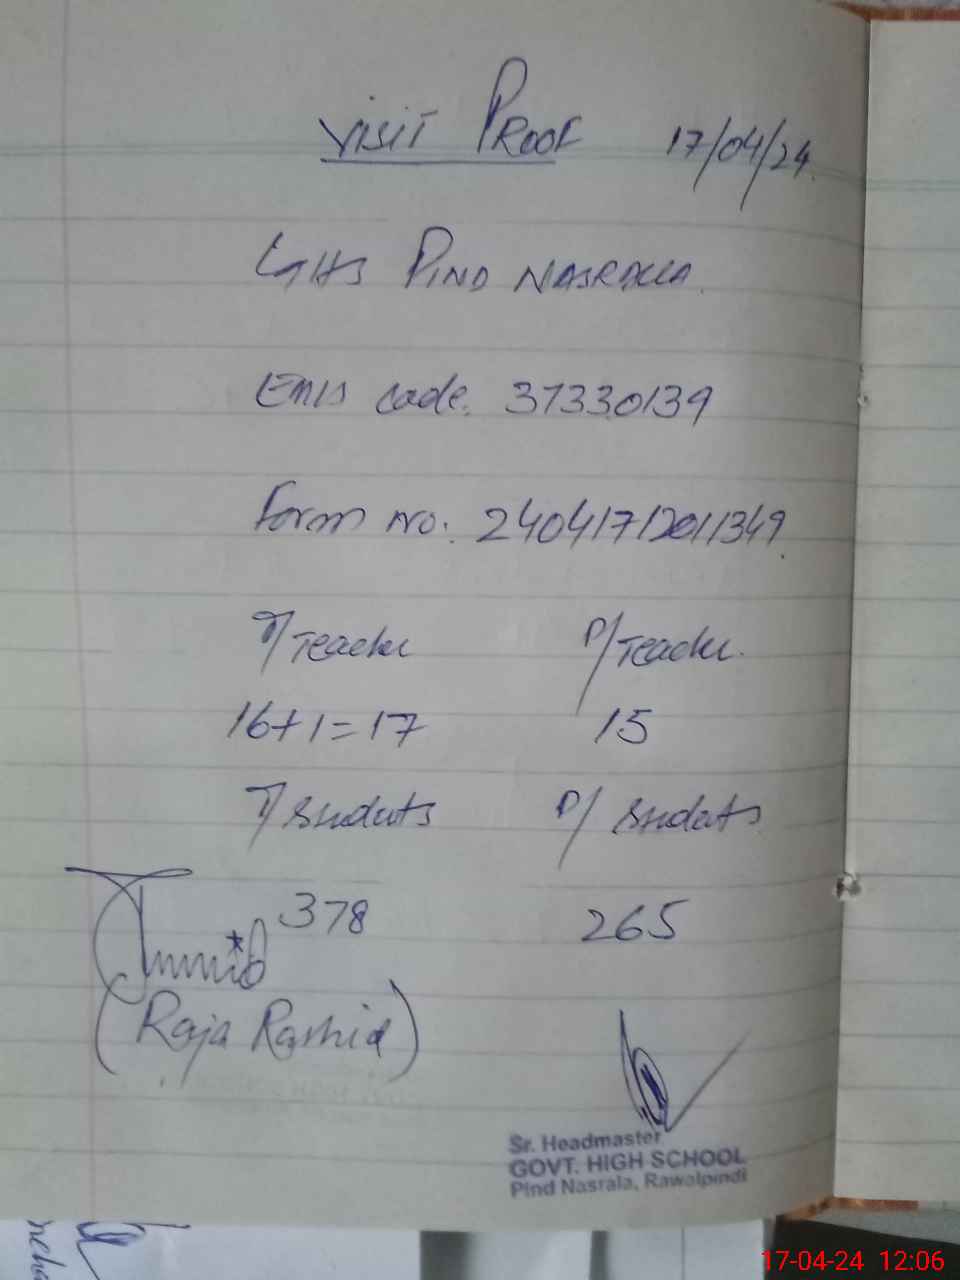 Visit Proof 17/04/24.
GHS Pind Nasralla.
Emis code. 37330139
Form no: 24041712011349.
T/Teacher P/Teacher.
16+1=17 15
T/Students P/Students
378 265
(Raja Rashid)
Sr. Headmaster
GOVT. HIGH SCHOOL
Pind Nasrala, Rawalpindi
17-04-24 12:06